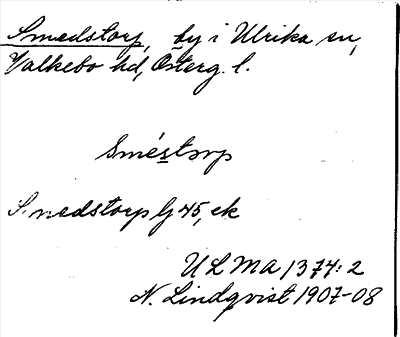 Smedstorp, by i Ulrika sn,
Valkebo hd, Österg. l.
Sméstorp
Smedstorp lj 45, ek
ULMA 1374:2
N. Lindqvist 1907-08